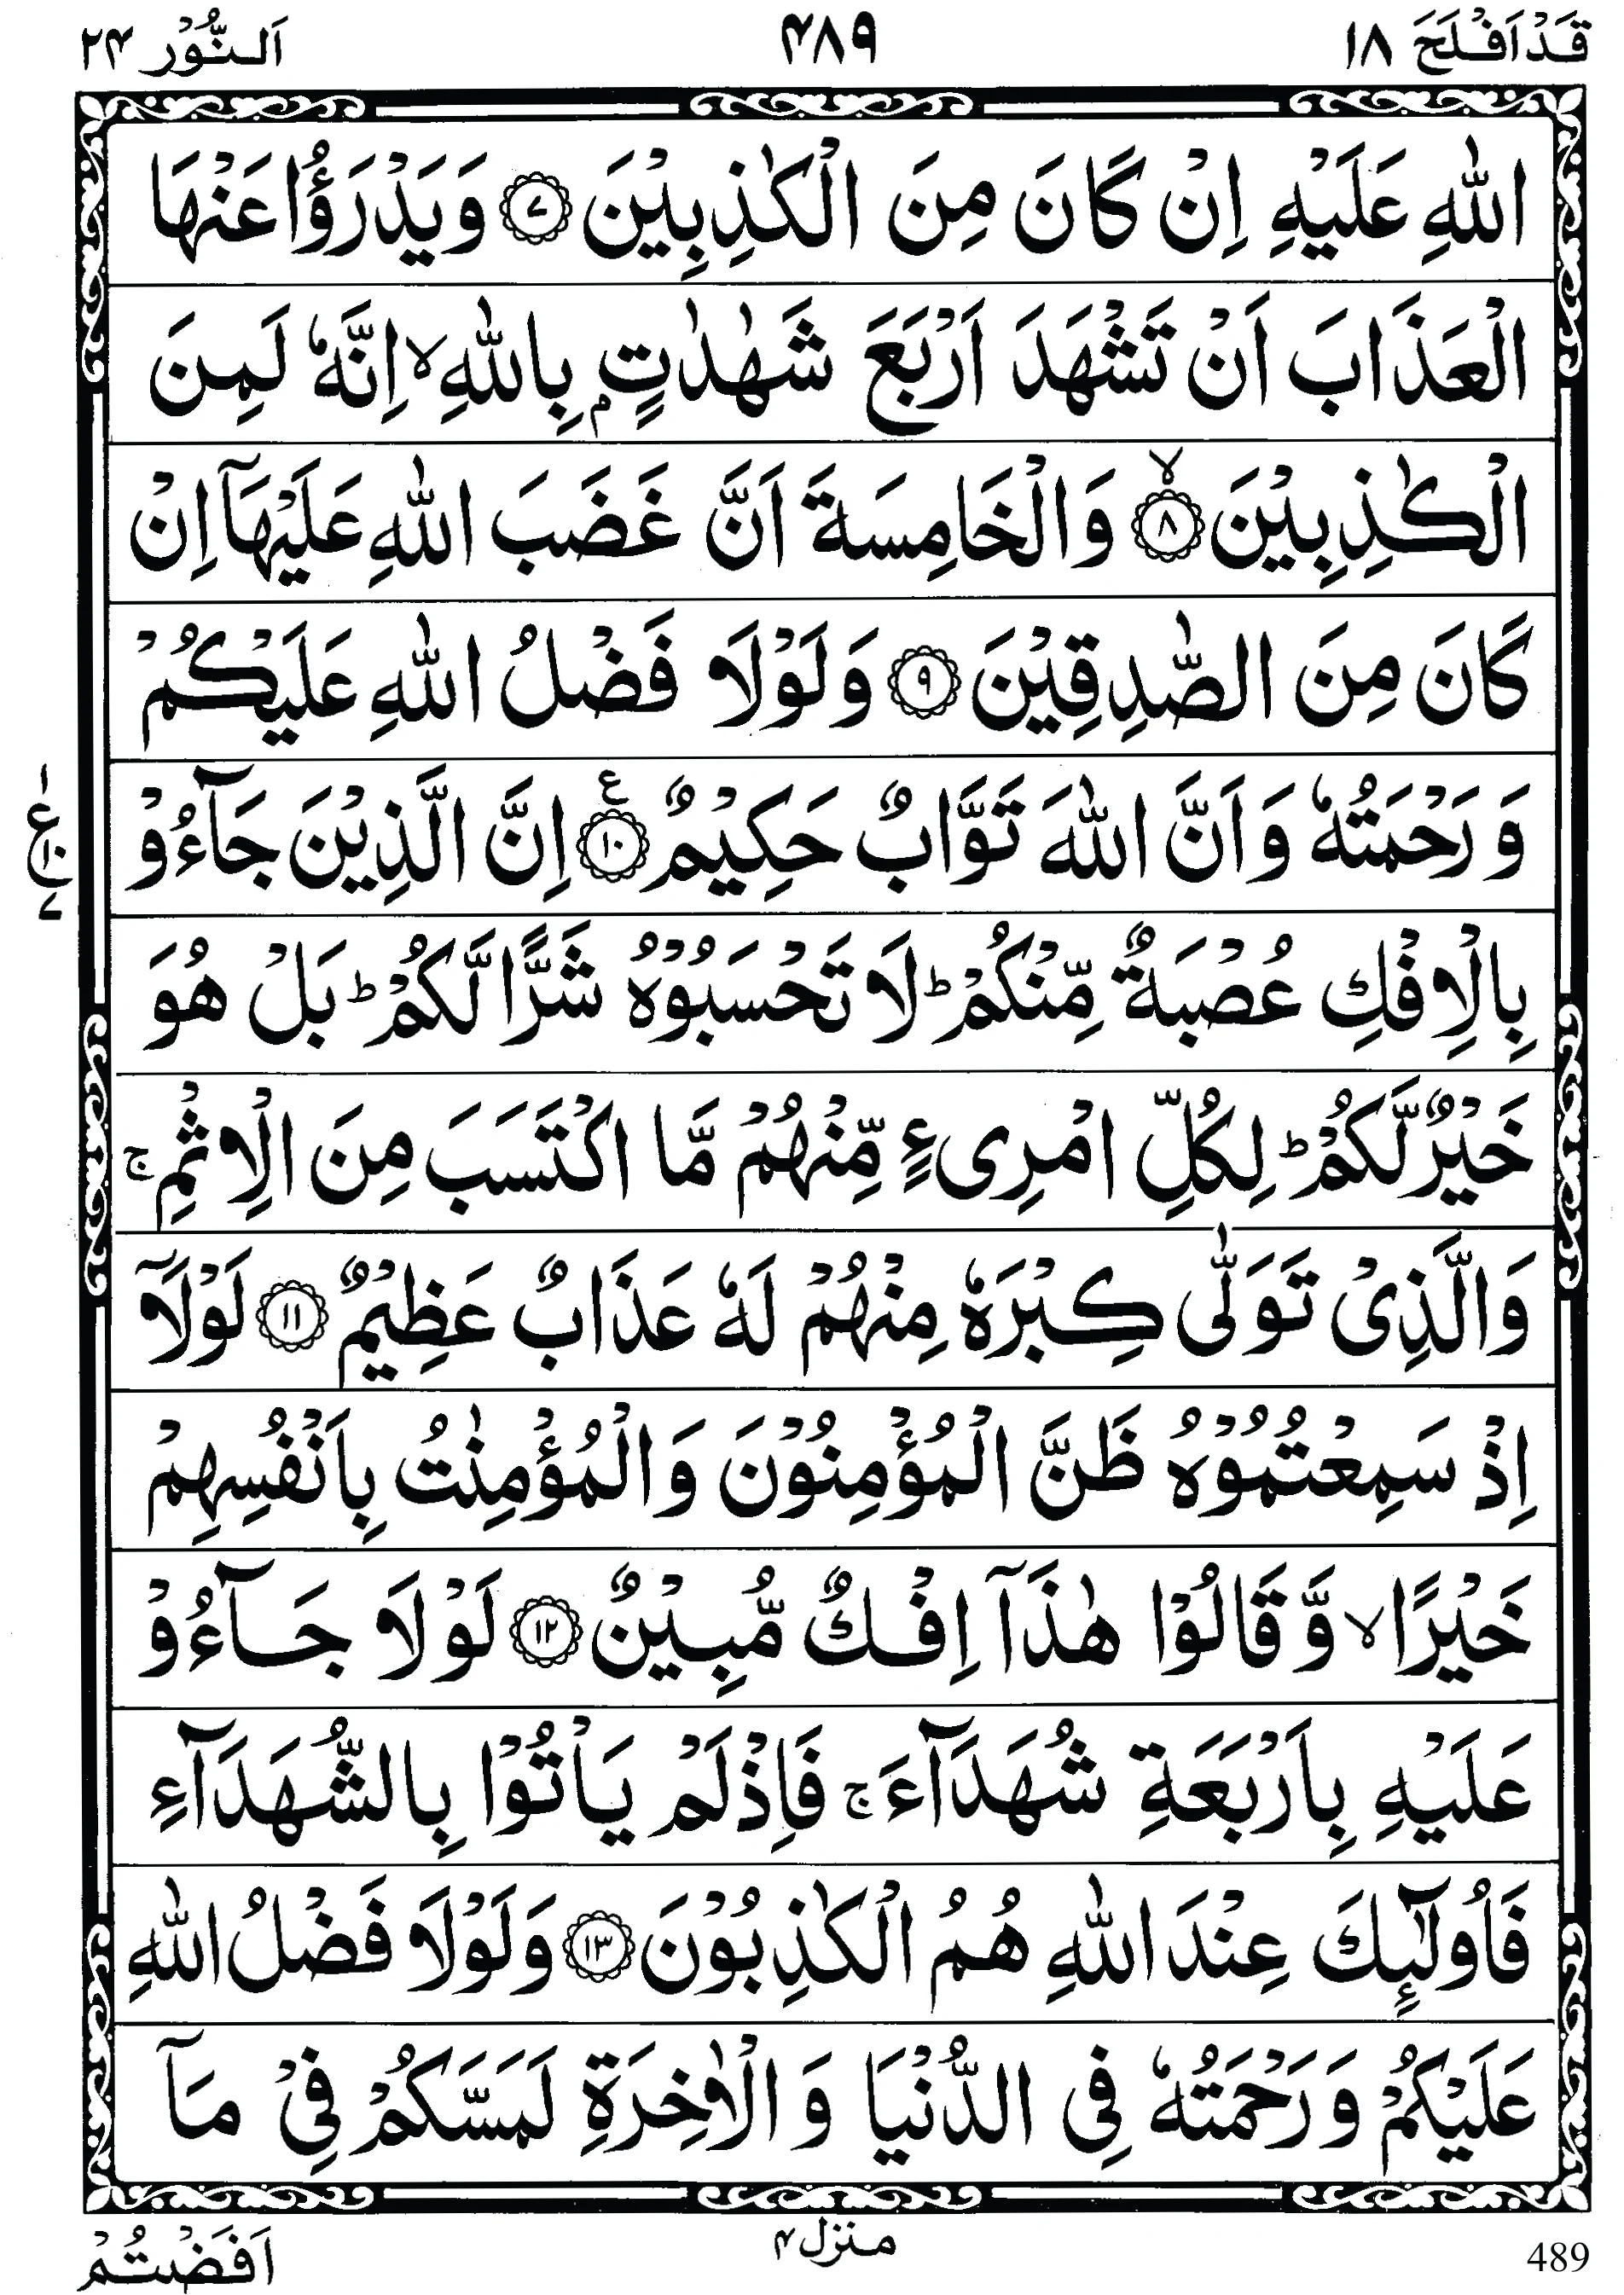 قَدْ اَفْلَحَ ١٨ ۴٨٩ اَلنُّوْر ٢۴
اللّٰهِ عَلَيْهِ اِنْ كَانَ مِنَ الْكٰذِبِيْنَ ۝۷ وَيَدْرَؤُا عَنْهَا
الْعَذَابَ اَنْ تَشْهَدَ اَرْبَعَ شَهٰدٰتٍۭ بِاللّٰهِ ۙ اِنَّهٗ لَمِنَ
الْكٰذِبِيْنَ ۝۸ ۙ وَالْخَامِسَةَ اَنَّ غَضَبَ اللّٰهِ عَلَيْهَاۤ اِنْ
كَانَ مِنَ الصّٰدِقِيْنَ ۝۹ وَلَوْلَا فَضْلُ اللّٰهِ عَلَيْكُمْ
وَرَحْمَتُهٗ وَاَنَّ اللّٰهَ تَوَّابٌ حَكِيْمٌ ۝۱۰ ع اِنَّ الَّذِيْنَ جَآءُوْ
١ ع ١٠ ۷
بِالْاِفْكِ عُصْبَةٌ مِّنْكُمْ ؕ لَا تَحْسَبُوْهُ شَرًّا لَّكُمْ ؕ بَلْ هُوَ
خَيْرٌ لَّكُمْ ؕ لِكُلِّ امْرِیءٍ مِّنْهُمْ مَّا اكْتَسَبَ مِنَ الْاِثْمِ ۚ
وَالَّذِیْ تَوَلّٰی كِبْرَهٗ مِنْهُمْ لَهٗ عَذَابٌ عَظِيْمٌ ۝۱۱ لَوْلَاۤ
اِذْ سَمِعْتُمُوْهُ ظَنَّ الْمُؤْمِنُوْنَ وَالْمُؤْمِنٰتُ بِاَنْفُسِهِمْ
خَيْرًا ۙ وَّقَالُوْا هٰذَاۤ اِفْكٌ مُّبِيْنٌ ۝۱۲ لَوْلَا جَآءُوْ
عَلَيْهِ بِاَرْبَعَةِ شُهَدَآءَ ۚ فَاِذْ لَمْ يَاْتُوْا بِالشُّهَدَآءِ
فَاُولٰٓئِكَ عِنْدَ اللّٰهِ هُمُ الْكٰذِبُوْنَ ۝۱۳ وَلَوْلَا فَضْلُ اللّٰهِ
عَلَيْكُمْ وَرَحْمَتُهٗ فِی الدُّنْيَا وَالْاٰخِرَةِ لَمَسَّكُمْ فِیْ مَاۤ
منزل ۴
اَفَضْتُمْ
489